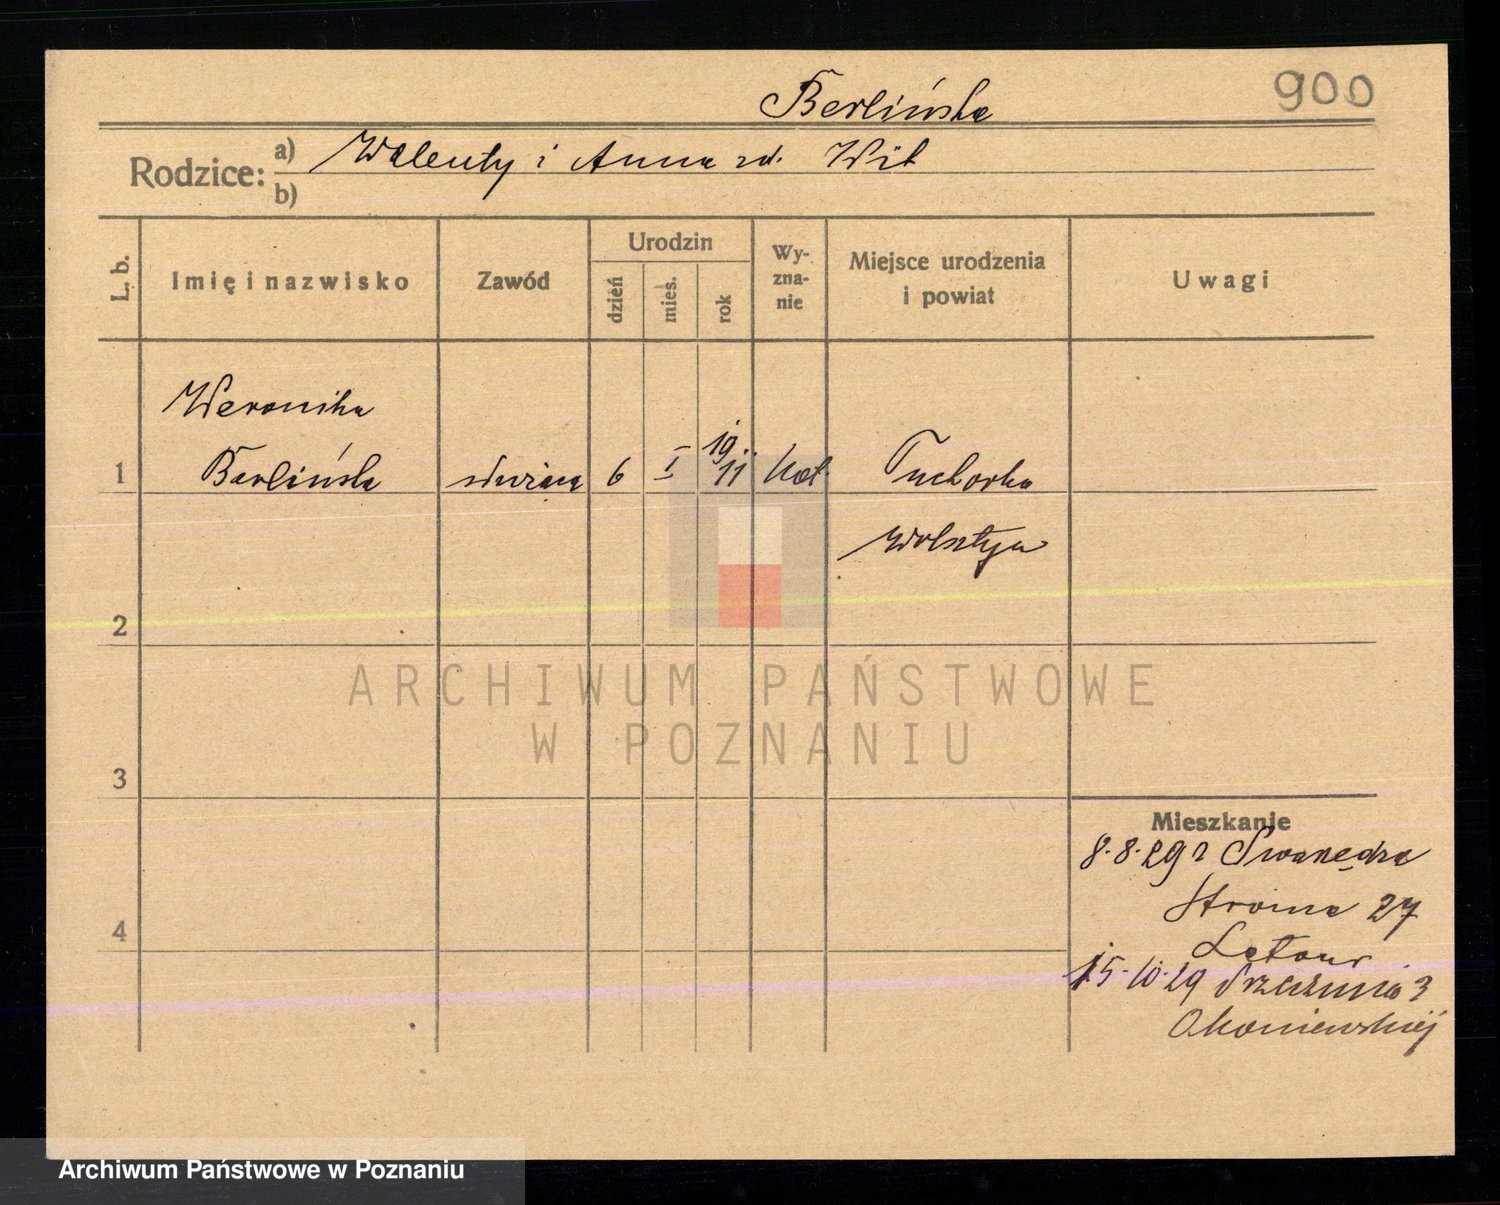 900
Berlińska
Rodzice: a) Walenty i Anna zd. Wit
b)
L. b.
Imię i nazwisko
Zawód
Urodzin
dzień
mies.
rok
Wy-
zna-
nie
Miejsce urodzenia
i powiat
Uwagi
Weronika
1 Berlińska służąca 6 I 1911 kat. Tuchorka
Wolsztyn
2
3
4
ARCHIWUM PAŃSTWOWE
W POZNANIU
Mieszkanie
8.8.29 z Swarzędza
Stroma 27
15.10.29 3
Archiwum Państwowe w Poznaniu